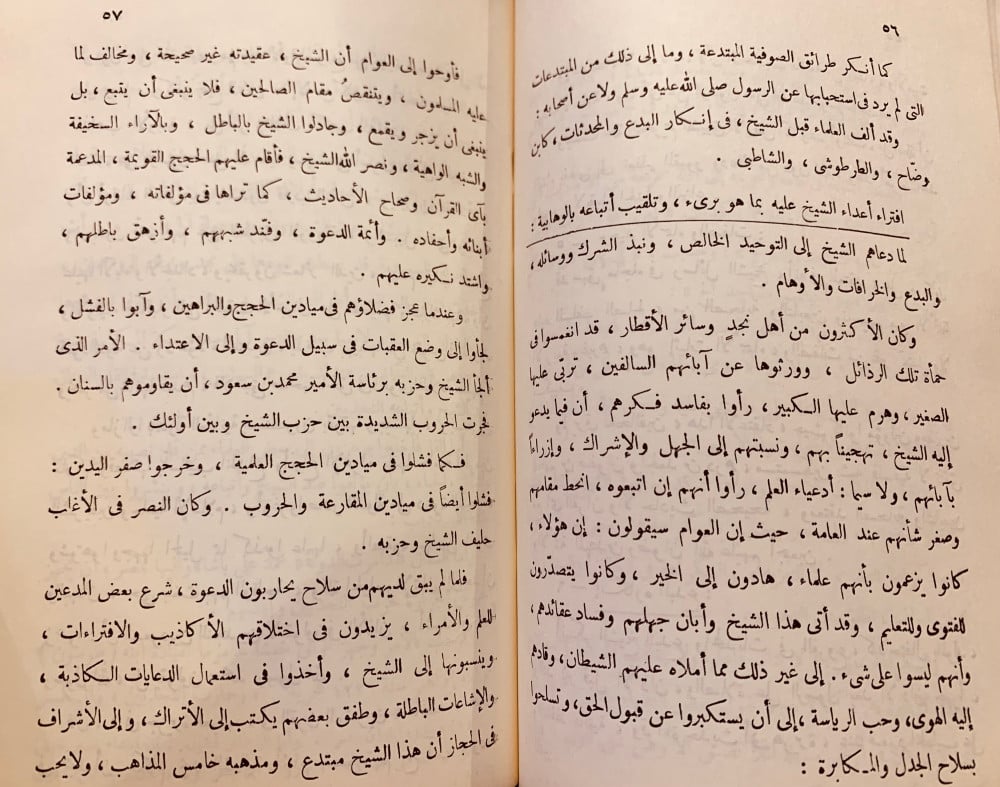 ٥٦
كما أنكر طرائق الصوفية المبتدعة ، وما إلى ذلك من المبتدعات
التى لم يرد فى استحبابها عن الرسول صلى الله عليه وسلم ولا عن أصحابه :
وقد ألف العلماء قبل الشيخ ، فى إنكار البدع والمحدثات ، كابن
وضّاح ، والطرطوشى ، والشاطبى .
افتراء أعداء الشيخ عليه بما هو برىء ، وتلقيب أتباعه بالوهابية :
لما دعاهم الشيخ إلى التوحيد الخالص ، ونبذ الشرك ووسائله ،
والبدع والخرافات والأوهام .
وكان الأكثرون من أهل نجدٍ وسائر الأقطار ، قد انغمسوا فى
حمأة تلك الرذائل ، وورثوها عن آبائهم السالفين ، تربّى عليها
الصغير ، وهرم عليها الكبير ، رأوا بفاسد فكرهم ، أن فيما يدعو
إليه الشيخ ، تهجيناً بهم ، ونسبتهم إلى الجهل والإشراك ، وإزراءاً
بآبائهم ، ولا سيما : أدعياء العلم ، رأوا أنهم إن اتبعوه ، انحط مقامهم
وصغر شأنهم عند العامة ، حيث إن العوام سيقولون : إن هؤلاء ،
كانوا يزعمون بأنهم علماء ، هادون إلى الخير ، وكانوا يتصدّرون
للفتوى وللتعليم ، وقد أتى هذا الشيخ وأبان جهلهم وفساد عقائدهم ،
وأنهم ليسوا على شىء . إلى غير ذلك مما أملاه عليهم الشيطان ، وقادهم
إليه الهوى ، وحب الرياسة ، إلى أن يستكبروا عن قبول الحق ، وتسلحوا
بسلاح الجدل والمكابرة :
٥٧
فأوحوا إلى العوام أن الشيخ ، عقيدته غير صحيحة ، ومخالف لما
عليه المسلمون ، ويتنقصُ مقام الصالحين ، فلا ينبغى أن يتبع ، بل
ينبغى أن يزجر ويقمع ، وجادلوا الشيخ بالباطل ، وبالآراء السخيفة
والشبه الواهية ، ونصر الله الشيخ ، فأقام عليهم الحجج القويمة ، المدعمة
بآى القرآن وصحاح الأحاديث ، كما تراها فى مؤلفاته ، ومؤلفات
أبنائه وأحفاده . وأئمة الدعوة ، وفنّد شبههم ، وأزهق باطلهم ،
واشتد نكيره عليهم .
وعندما عجز فضلاؤهم فى ميادين الحجج والبراهين ، وآبوا بالفشل ،
لجأوا إلى وضع العقبات فى سبيل الدعوة وإلى الاعتداء . الأمر الذى
ألجأ الشيخ وحزبه برئاسة الأمير محمد بن سعود ، أن يقاوموهم بالسنان .
فجرت الحروب الشديدة بين حزب الشيخ وبين أولئك .
فكما فشلوا فى ميادين الحجج العلمية ، وخرجوا صفر اليدين :
فشلوا أيضاً فى ميادين المقارعة والحروب . وكان النصر فى الأغلب
حليف الشيخ وحزبه !
فلما لم يبق لديهم من سلاح يحاربون الدعوة ، شرع بعض المدعين
للعلم والأمراء ، يزيدون فى اختلاقهم الأكاذيب والافتراءات ،
وينسبونها إلى الشيخ ، وأخذوا فى استعمال الدعايات الكاذبة ،
والإشاعات الباطلة ، وطفق بعضهم يكتب إلى الأتراك ، وإلى الأشراف
فى الحجاز أن هذا الشيخ مبتدع ، ومذهبه خامس المذاهب ، ولا يحب